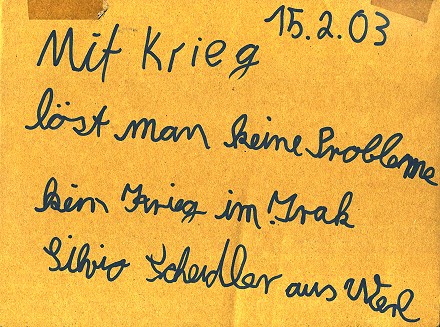 15.2.03
Mit Krieg
löst man keine Probleme
kein Krieg im Irak
Silvio Scheidler aus Werl